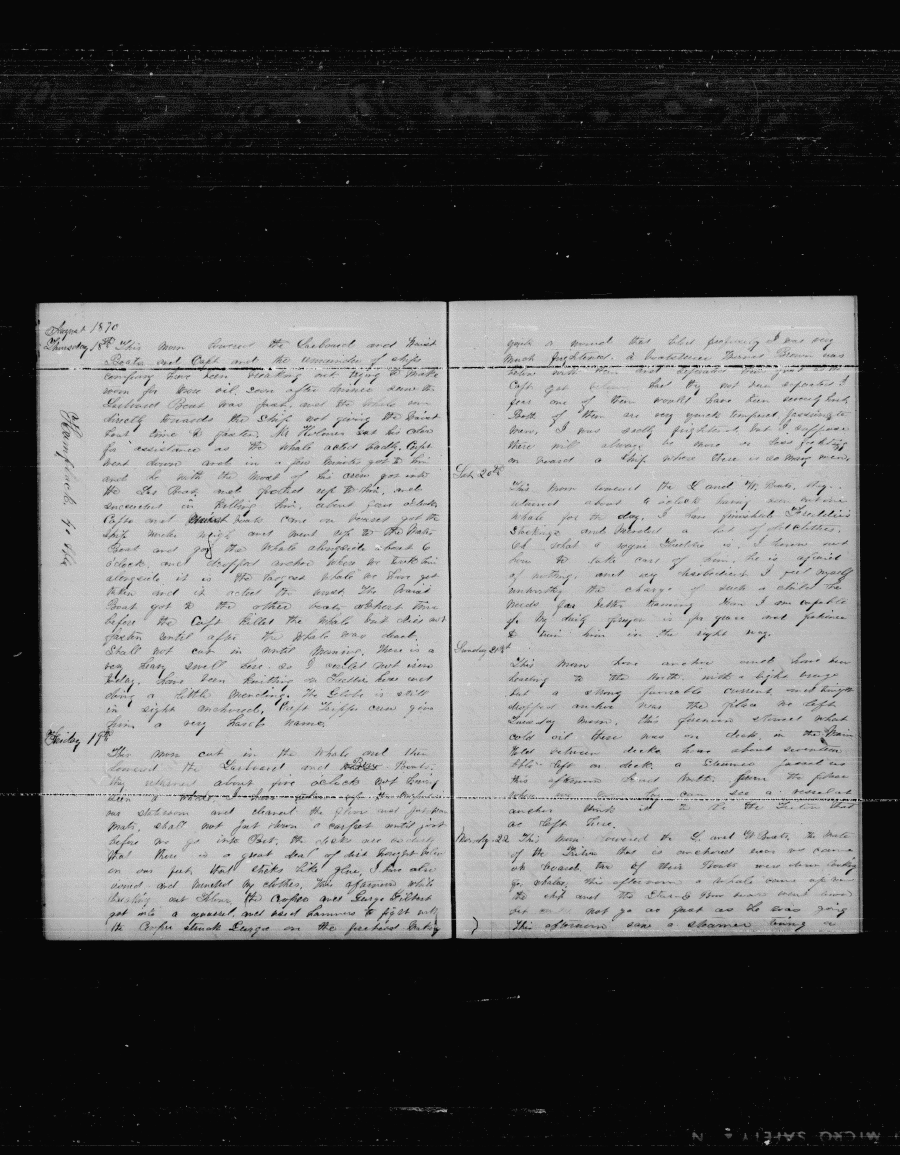 August 1870
Thursday 18th This morn lowered the Larboard and Waist
Boats and Capt and the remainder of ships
company have been working out trying to make
room for more oil. soon after dinner saw the
Larboard Boat was fast, and the whale run
directly towards the Ship not giving the Waist
boat time to fasten, Mr Holmes set his colors
for assistance as the whale acted badly. Capt
went down and in a few minutes got to him
and he with the most of his crew got into
the Lar Boat and pulled up to him, and
succeeded in killing him. about four oclock
Capt and Waist boats came on board got the
ship under weigh and went up to the Lar
Boat and got the Whale alongside about 6
oclock, and dropped anchor where we took him
alongside, it is the largest Whale we have yet
taken and it acted the worst. The Waist
Boat got to the other boat a short time
before the Capt killed the Whale but did not
fasten until after the Whale was dead.
Shall not cut in until Morning, There is a
very heavy swell here. so I could not iron
today. have been knitting on Freddies hose and
doing a little mending. The Globe is still
in sight anchored, Capt Tripps crew give
him a very hard name.
Humpback 40 bbls
Friday 19th
This morn cut in the Whale and then
lowered the Larboard and Boats.
they returned about five oclock not having
seen a whale. I have
our stateroom and cleaned the floor and put down
mats, shall not put down a carpet until just
before we go into Port, the decks are so dirty
that there is a great deal of dirt brought below
on our feet, that sticks like glue, I have also
ironed and mended my clothes, This afternoon while
hoisting out the Cooper and George Gilbert
got into a quarrel, and used hammers to fight with
the Cooper struck George on the forehead making
quite a wound that bled profusely I was very
much frightened. a Portuguese Thomas Brown was
below with them and separated them just as the
Capt got below. had they not been separated I
fear one of them would have been severely hurt
Both of them are very quick tempered passionate
men, I was sadly frightened but I suppose
there will always be more or less fighting
on board a Ship where there is so many men,
Sat. 20th
This Morn lowered the L and W Boats, they
returned about 6 oclock having seen nary
whale for the day. I have finished Freddies
Stockings and mended a lot of old clothes.
Oh what a rogue Freddie is. I know not
how to take care of him. he is afraid
of nothing. and very disobedient I feel myself
unworthy the charge of such a child he
needs far better training than I am capable
of. My daily prayer is for grace and patience
to train him in the right way.
Sunday 21st
This Morn hove anchor and have been
heading to the North with a light breeze
but a strong favorable current, and tonight
dropped anchor near the place we left
Tuesday morn. this forenoon stowed what
cold oil there was on deck, in the Main
Hold between decks have about seventeen
bbls left on deck. a steamer passed us
this afternoon bound North. from the place
where we now lay can see a vessel at
anchor think it to be the Triton that
we left here.
Monday 22 This morn lowered the L. and W Boats. The mate
of the Triton that is anchored near us came
on board, two of their boats were down looking
for whales, this afternoon a whale came up near
the ship and the Star & Bow boats went down
but could not go as fast as he was going
This afternoon saw a steamer going